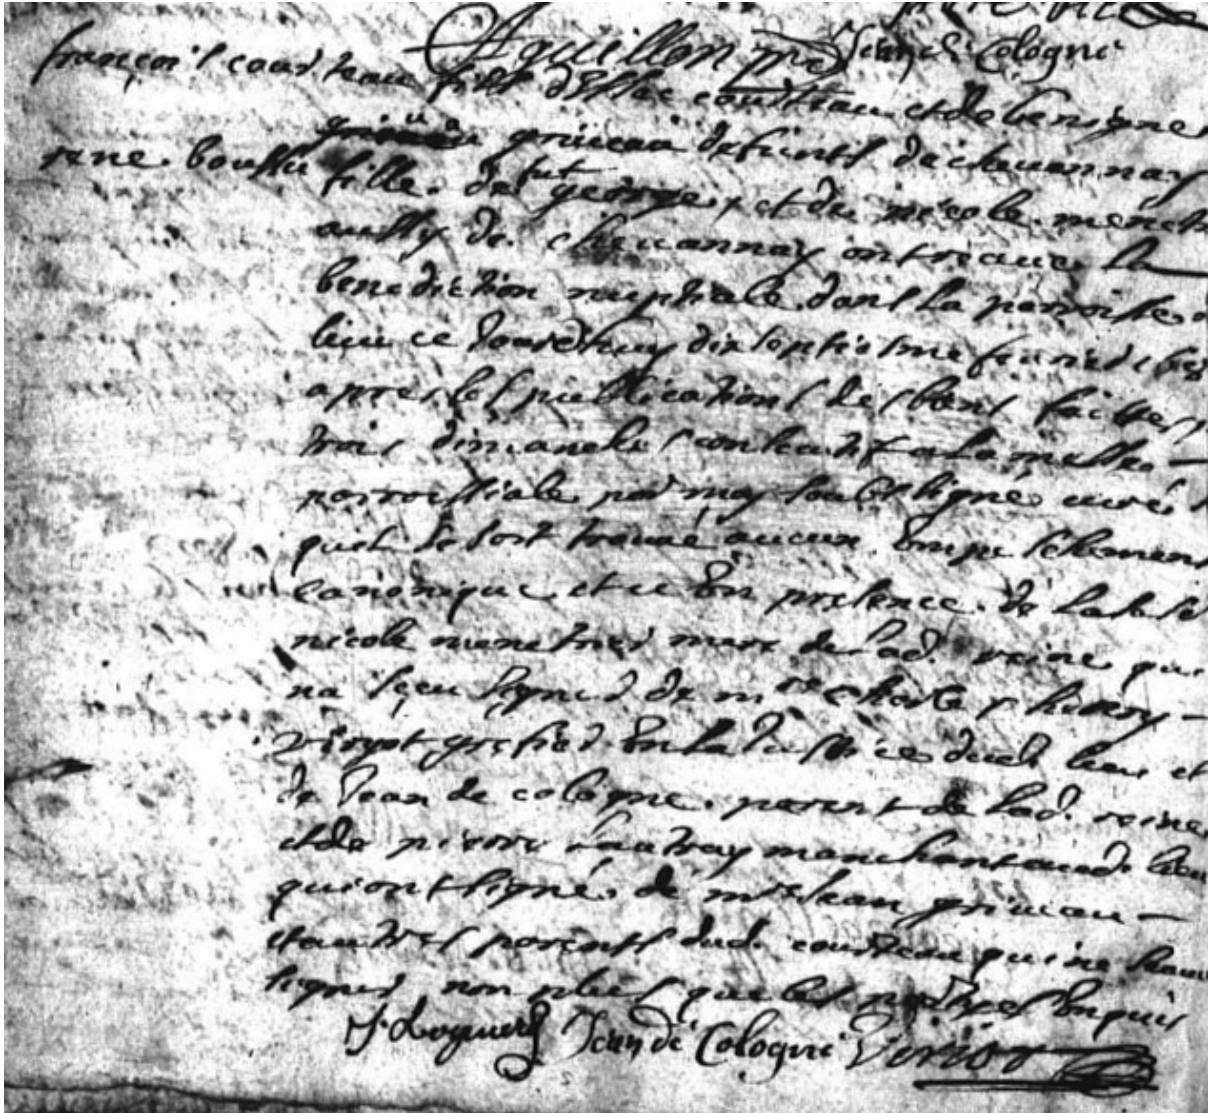 Aguillon Jean de Cologne
françois coudteau fils deffite coudteau et de benigne
griveau defuntis de chevannay
reine boussu fille de fut george et de nicole menet
aussy de chevannay ont receue la
benediction nuptiale dans la paroisse
lieu ce jourdhuy dix septiesme feurier
apres les publications des bans faittes
trois dimanches consecutifs a la messe
parroissiale par moy soubsigné curé
quil se soit trouué aucun empeschement
canonique et ce en presence de
nicole menetrier mere de lad. reine qui
na sceu signer de mre charle thierry
viriot grefier en la justice dud. lieu et
de Jean de cologne parent de lad. reine
et de pierre marchant aud. lieu
qui ont signé de mre Jean griueau
et autres parents dud. coudteau qui ne
signer non plus que les parties enquis
Jean de Cologne Viriot